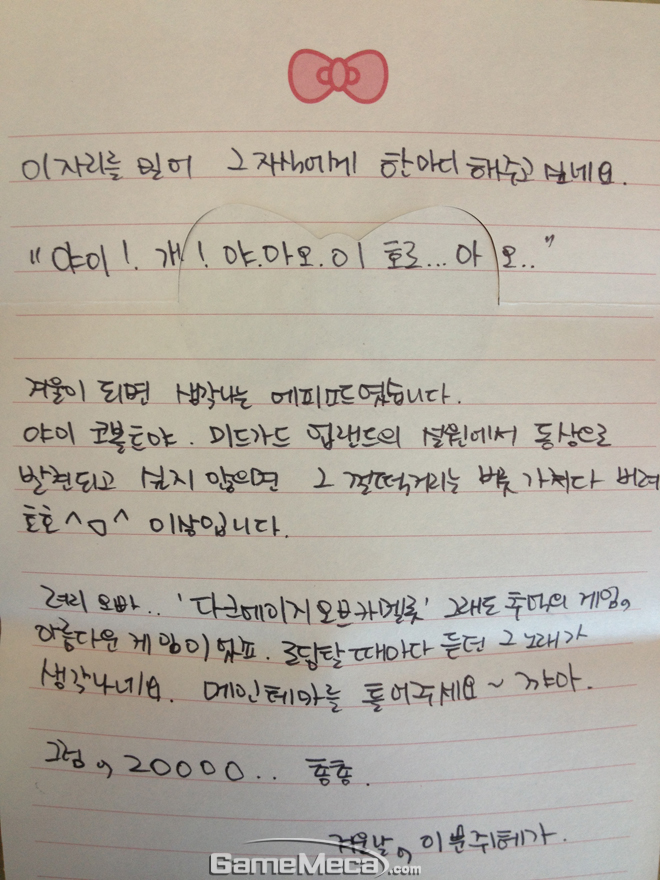 이 자리를 빌어 그 자식에게 한마디 해주고 싶네요.
"야이!. 개! 야.아오.이 호로... 아 오.."
겨울이 되면 생각나는 에피소드였습니다.
야이 코볼트야. 미드가드 업랜드의 설원에서 동상으로
발견되고 싶지 않으면 그 껄떡거리는 버릇 가져다 버려
호호^ㅁ^ 이상입니다.
려리 오빠.. '다크에이지오브카멜롯' 그래도 추억의 게임,
아름다운 게임이었죠. 로딩할 때마다 듣던 그 노래가
생각나네요. 메인테마를 틀어주세요~ 꺄아.
그럼, 20000.. 총총.
겨울날, 이분쥐테가.
GameMeca.com